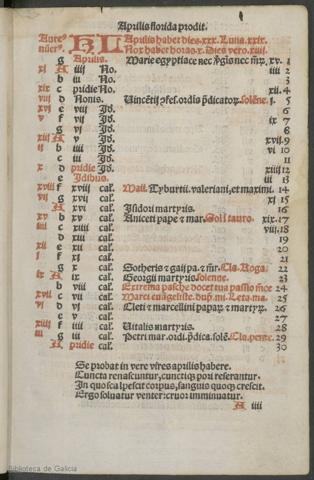 Aprilis florida prodit.
Aure⁹ KL Aprilis habet dies.xxx. Luna.xxix.
nuer⁹. Nox habet horas.x. Dies vero.xiiij.
g Aprilis. Marie egyptiace nec v̄gis nec m̄r. xv. 1
xj A iiij No. iiij 2
b iij No. 3
xix c pridie No. xij. 4
viij d Nonis. Vincētij ɔfes. ordis p̄dicatoꝝ. solēne. j. 5
e viij Jd. 6
f vij Jd. ix 7
g vj Jd. 8
xiij A v Jd. xvij. 9
ij b iiij Jd. vj 10
c iij Jd. 11
x d pridie Jd. 12
e Jdibus. iij 13
xviij f xviij cal. Maij. Tyburtij. valeriani, et maximi. 14
vij g xvij cal. xj 15
A xvj cal. Isidori martyris. 16
xv b xv cal. Aniceti pape ⁊ mar. Sol ī tauro. xix. 17
c xiiij cal. viij. 18
d xiij cal. 19
xij e xij cal. 20
j f xj cal. 21
g x cal. Sotheris ⁊ gaij pa. ⁊ m̄r. Cla. Roga. 22
ix A ix cal. Georgij martyris solenne. 23
b viij cal. Extrema pasche docet tua passio m̄ce 24
xvij c vij cal. Marci euāgeliste. dup. mi. Leta. ma. 25
vj d vj cal. Cleti ⁊ marcellini papaꝝ ⁊ martyꝝ. 26
e v cal. 27
xiiij f iiij cal. Uitalis martyris. 28
iij g iij cal. Petri mar. ordi. p̄dica. solē. Cla. pente. 29
A pridie cal. 30
Se probat in vere vires aprilis habere.
Cuncta renascuntur, cunctiqꝫ pori reserantur.
In quo scalpescit corpus, sanguis quoqꝫ crescit.
Ergo soluatur venter: cruor imminuatur.
A iiij
Biblioteca de Galicia